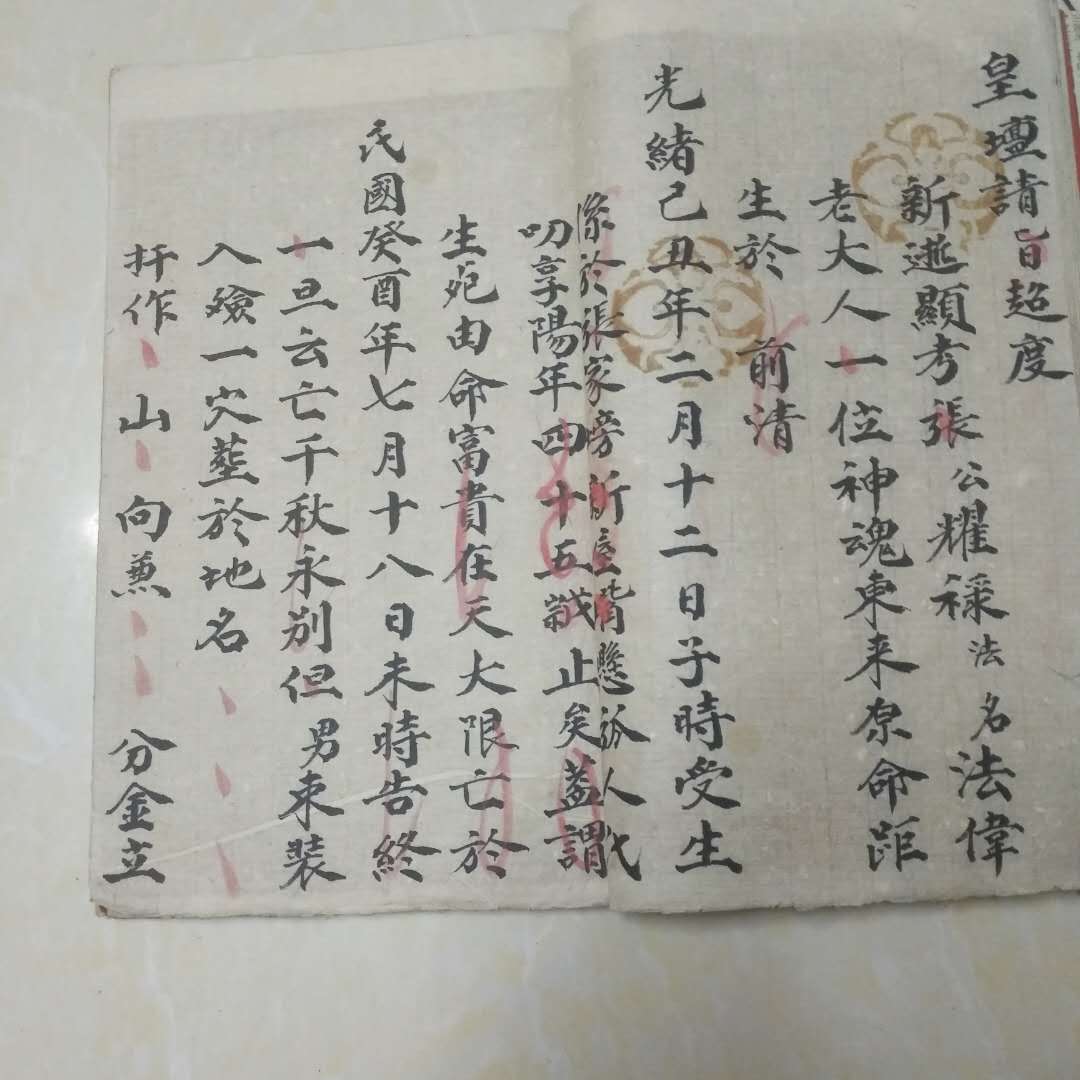 皇壇請旨超度
新逝顯考張公耀祿法名法偉
老大人一位神魂東来原命距
生於 前清
光緒己丑年二月十二日子時受生
像於張家塝新屋背懸孤人氏
叨享陽年四十五歲止矣蓋謂
生死由命富貴在天大限亡於
民國癸酉年七月十八日未時告終
一旦云亡千秋永別但男束装
入殮一穴塟於地名
扦作 山 向兼 分金立